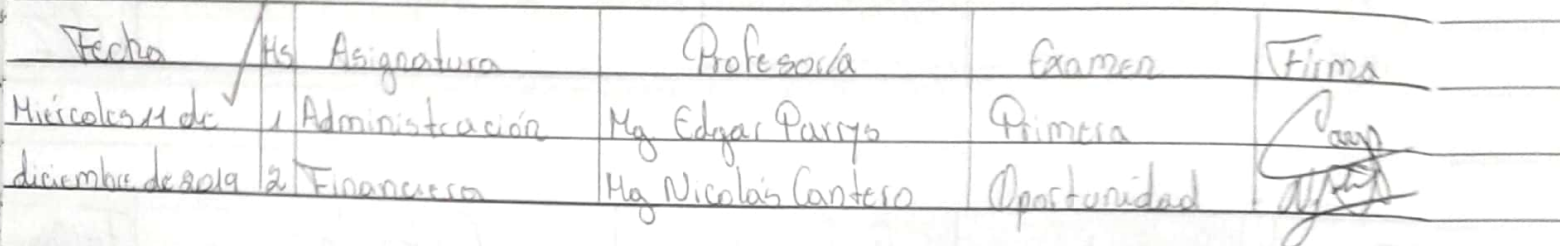 Fecha Hs Asignatura Profesor/a Examen Firma
Miércoles 11 de 1 Administración Mg Edgar Parrys Primera
diciembre de 2019 2 Financiera Mg Nicolás Cantero Oportunidad